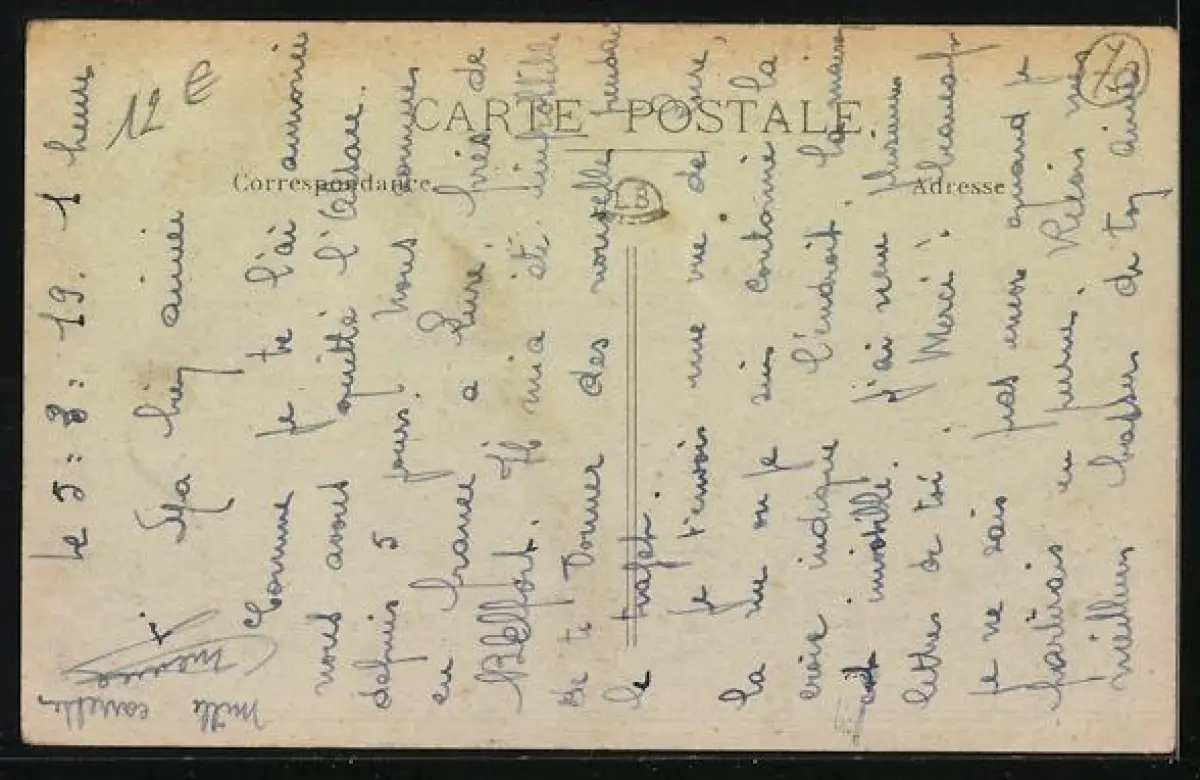 CARTE POSTALE
Correspondance
Adresse
LB
12 €
70
le 5=3=19. 1 heure
Ma bien aimée
Comme je te l'ai annoncé
nous avons quitté l'Alsace.
depuis 5 jours. Nous sommes
en France a Lure près de
Belfort. Il m'a été impossible
de te donner des nouvelles pendant
le trajet.
Je t'envoie une vue de Lure,
la rue ou je suis cantonné la
croix indique l'endroit. la maison
est invisible. J'ai reçu plusieurs
lettres de toi. Merci!
Je ne sais pas encore quand je
partirais en perme. Reçois mes
meilleurs baisers de toy aimé
mille caresses